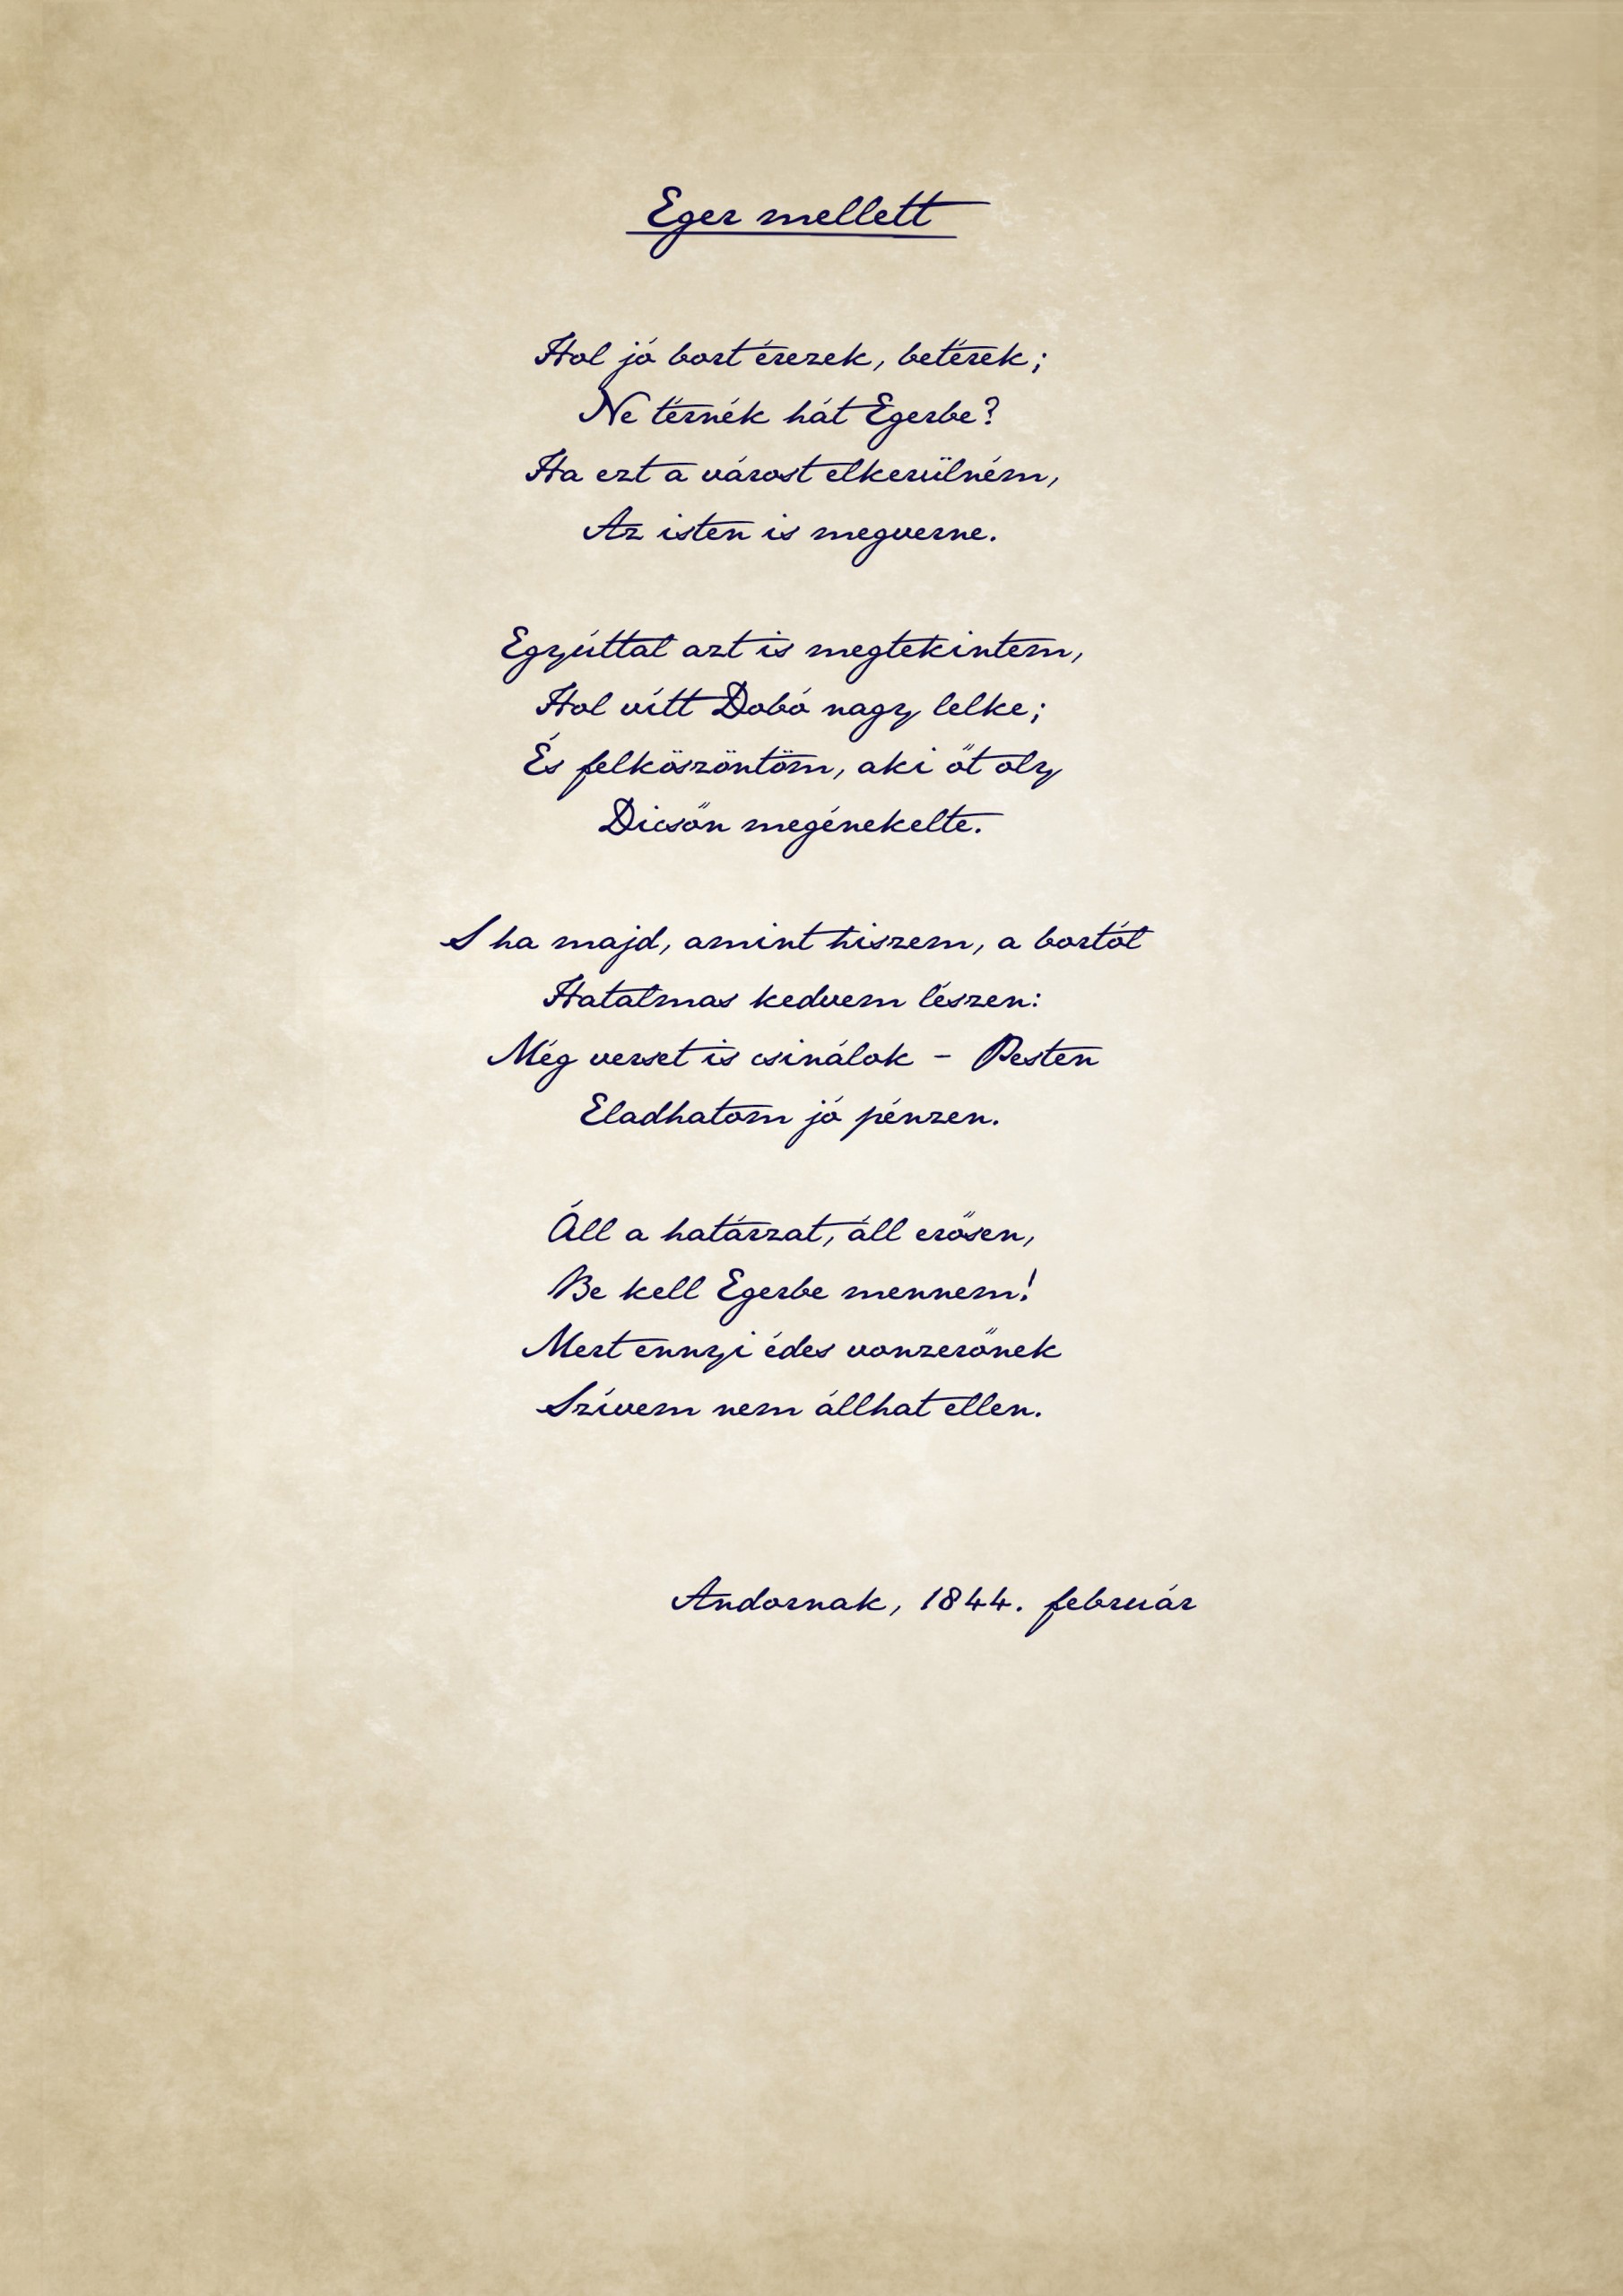 Eger mellett
Hol jó bort érezek, betérek;
Ne térnék hát Egerbe?
Ha ezt a várost elkerülném,
Az isten is megverne.
Egyúttal azt is megtekintem,
Hol vítt Dobó nagy lelke;
És felköszöntöm, aki őt oly
Dicsőn megénekelte.
S ha majd, amint hiszem, a bortól
Hatalmas kedvem lészen:
Még verset is csinálok – Pesten
Eladhatom jó pénzen.
Áll a határzat, áll erősen,
Be kell Egerbe mennem!
Mert ennyi édes vonzerőnek
Szívem nem állhat ellen.
Andornak, 1844. február